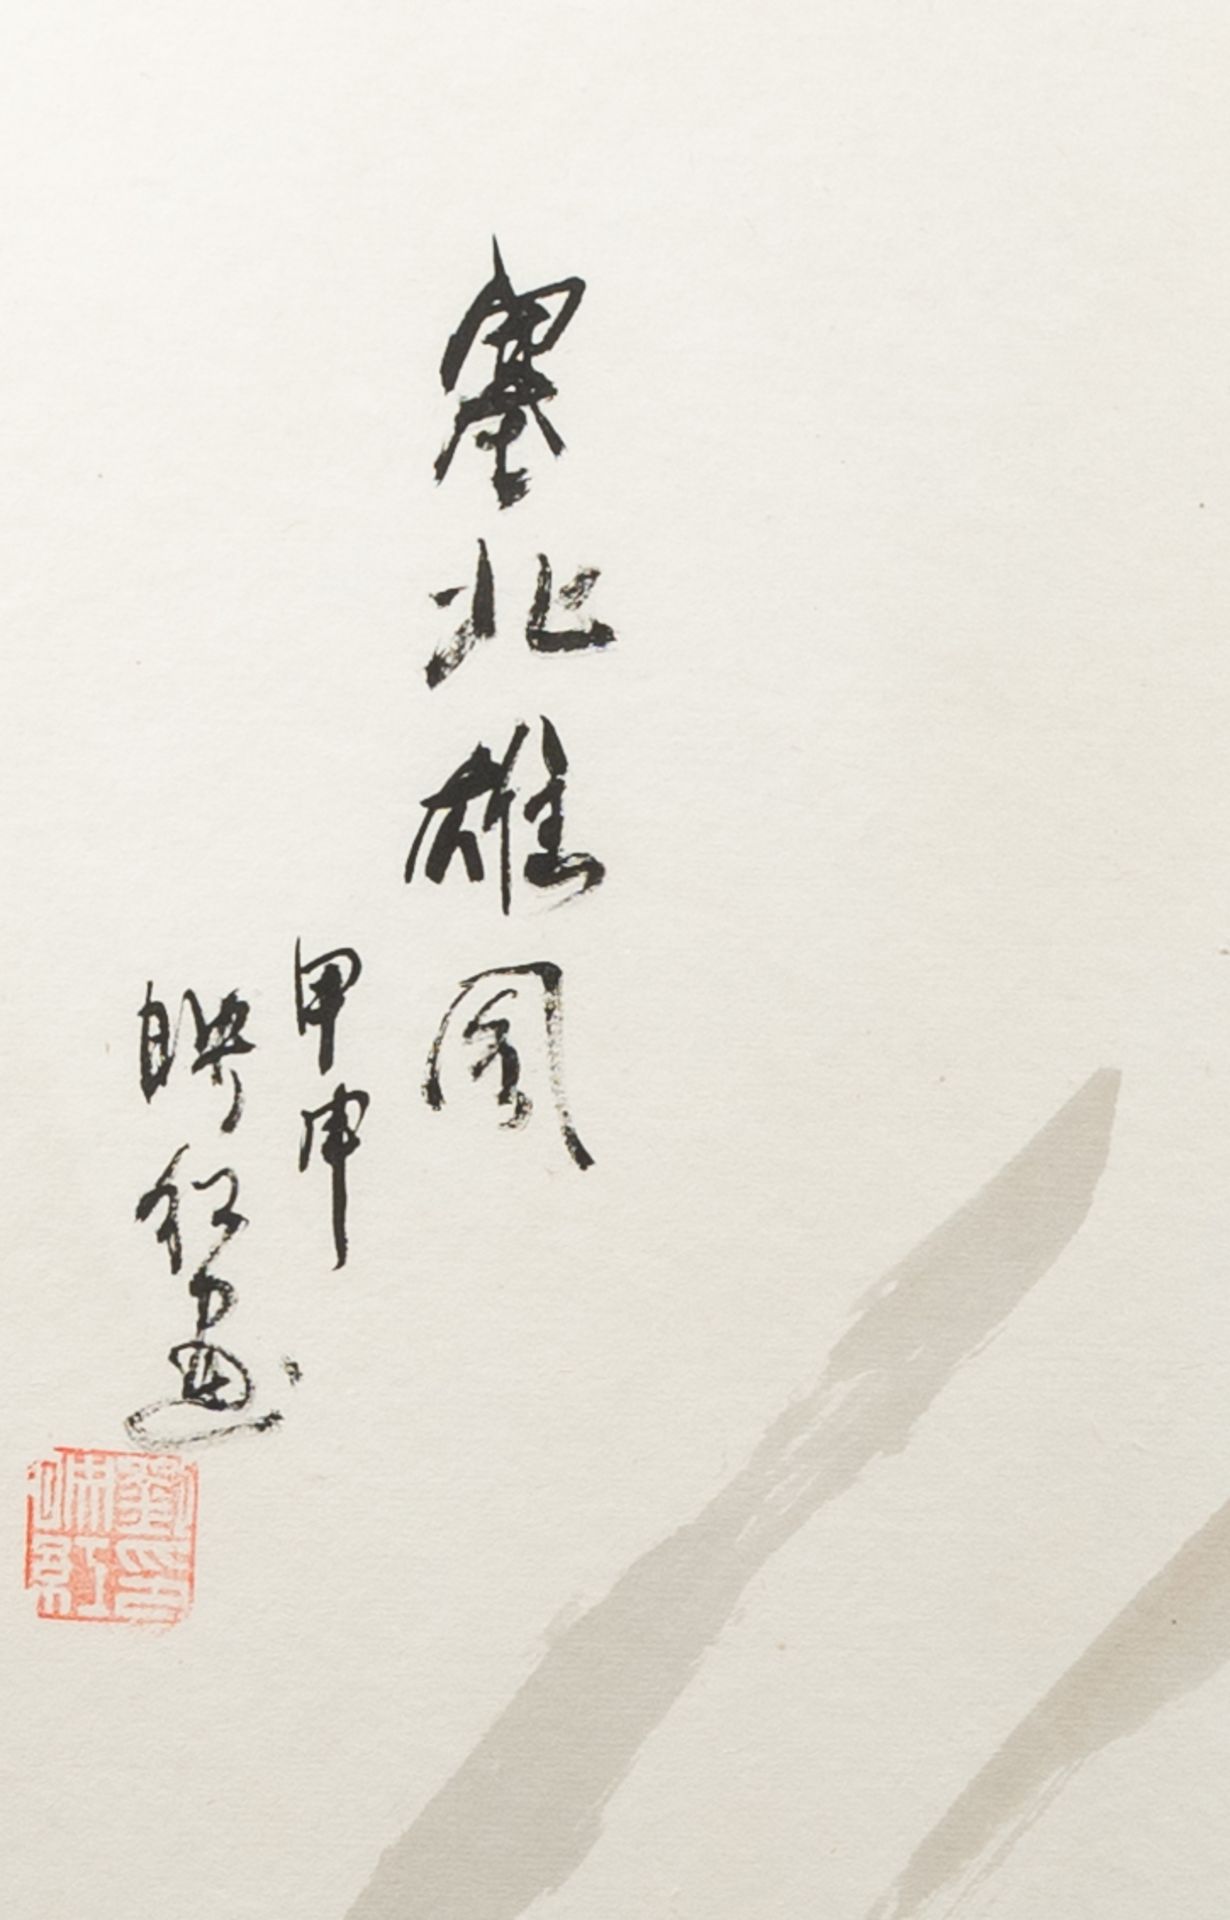 塞北雄風
甲申
映紅畫
劉印
映紅